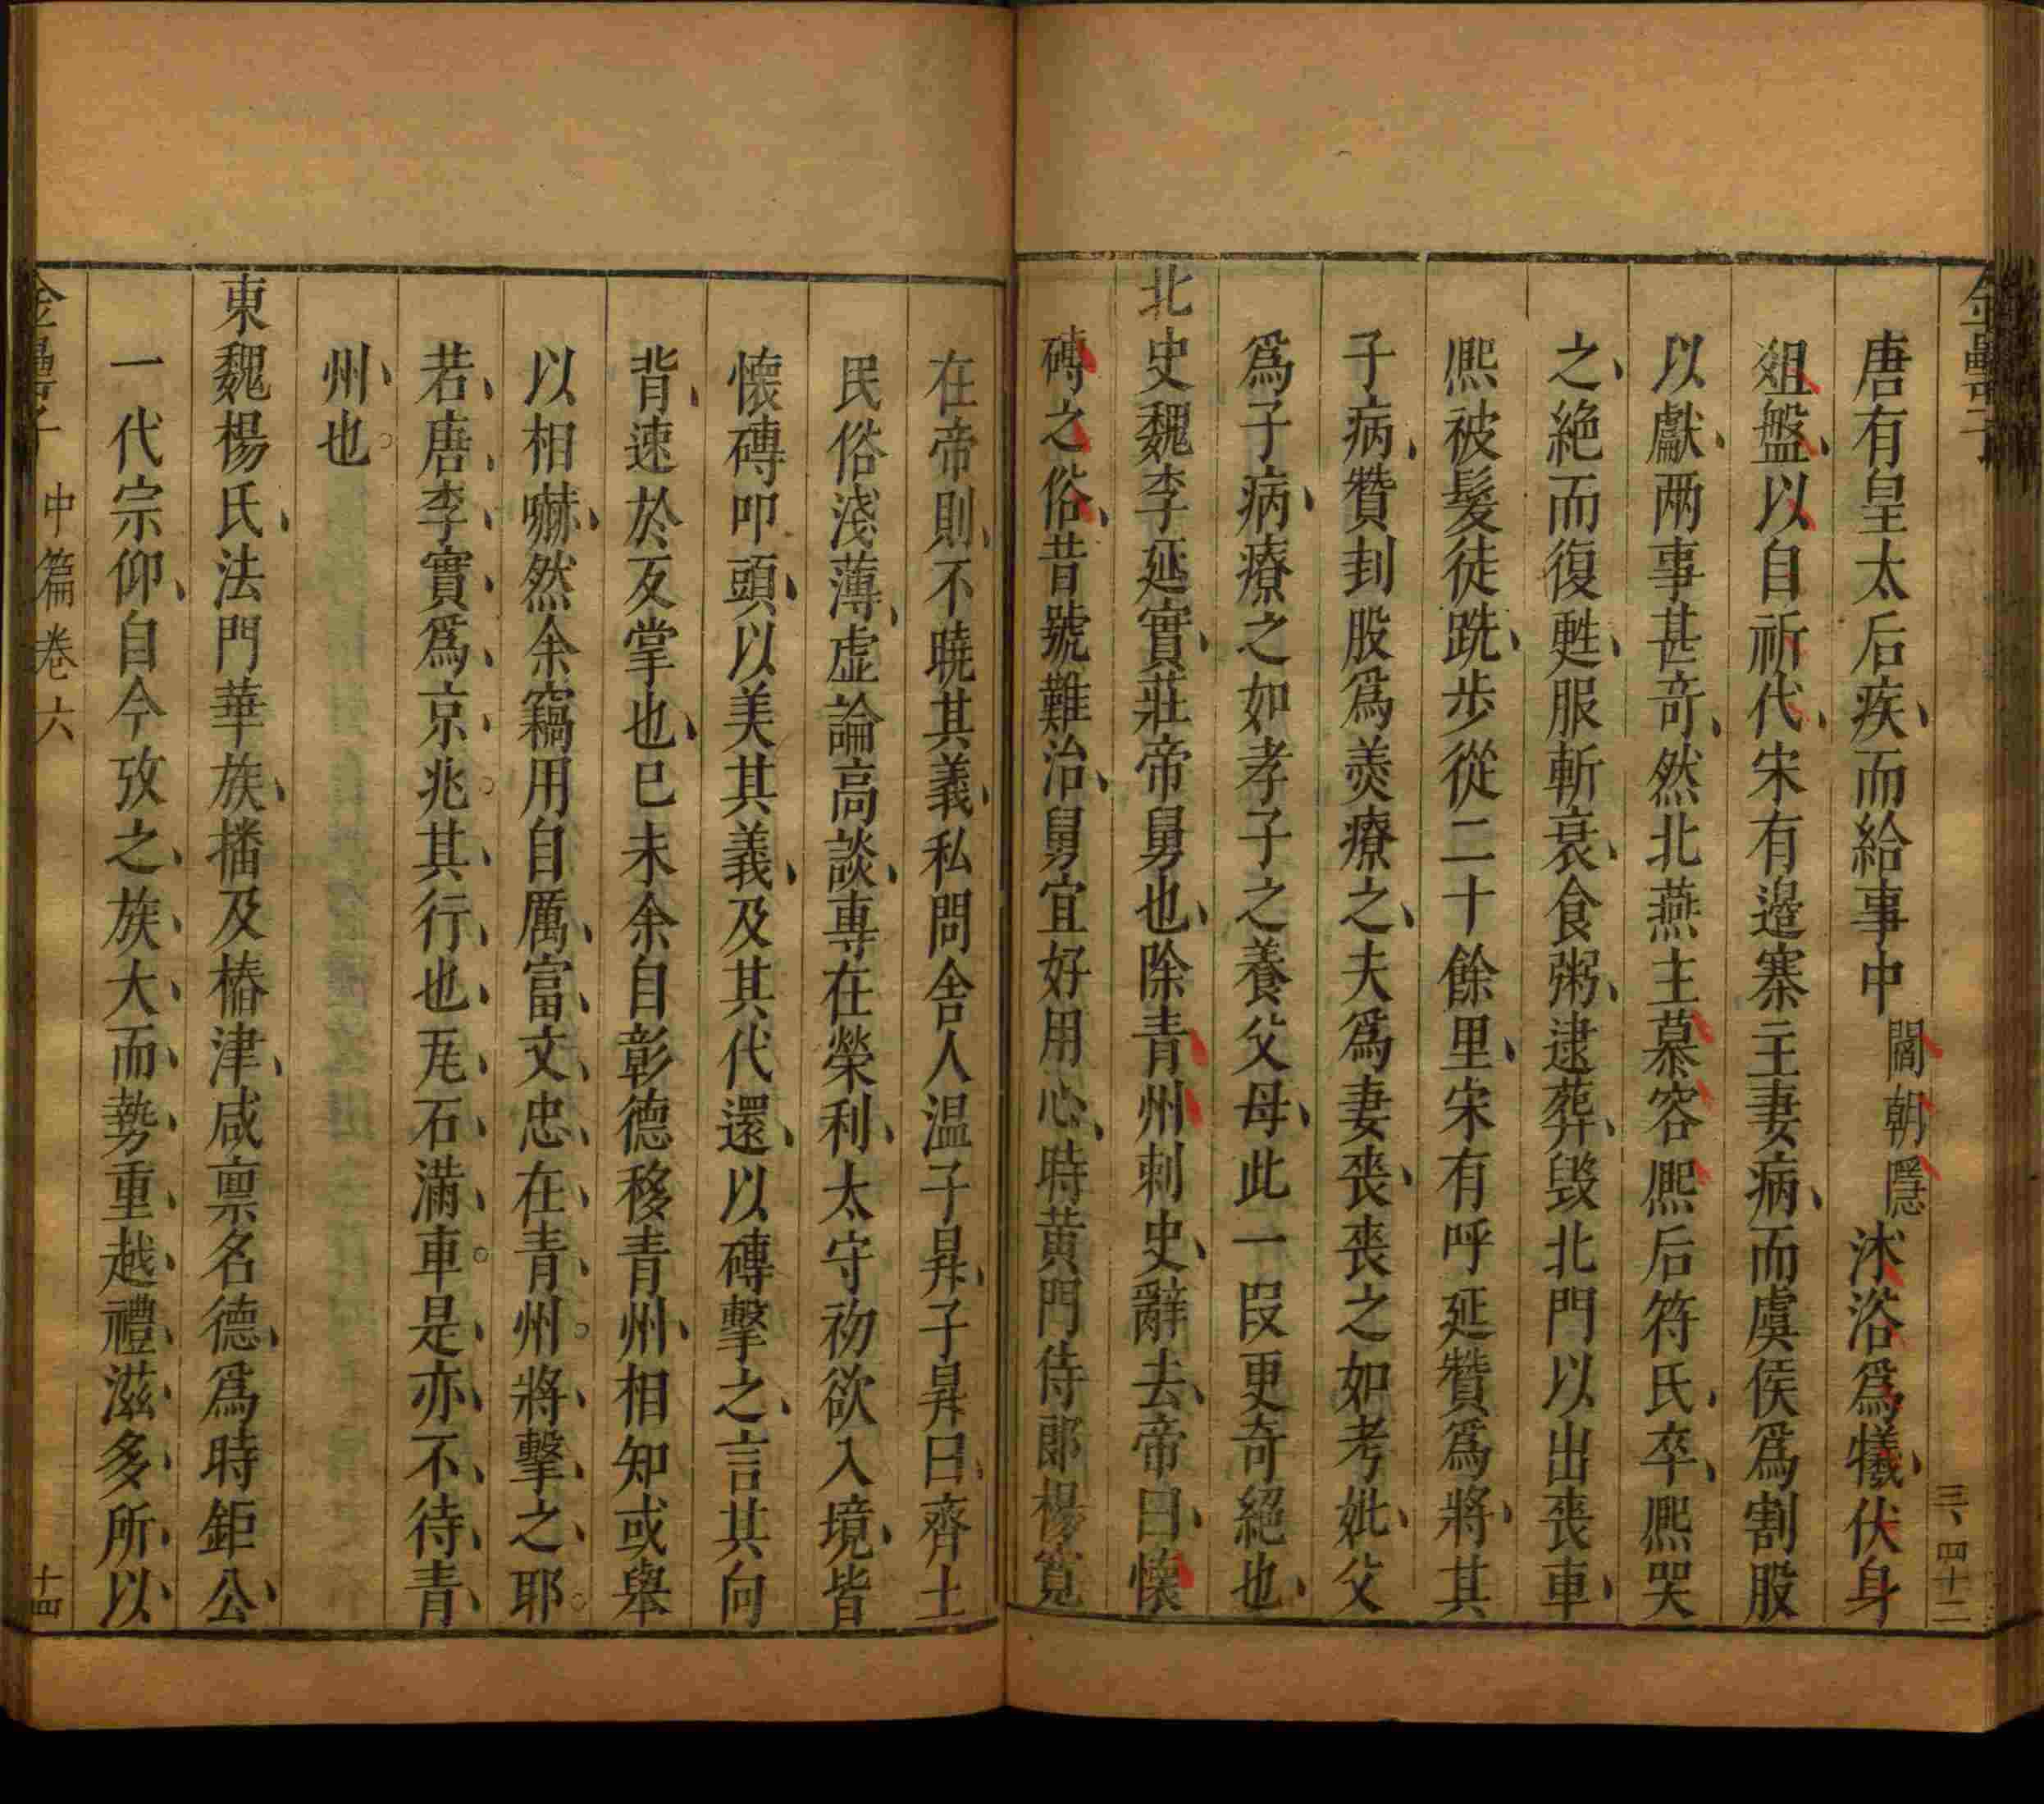 金罍子
三、四十二
唐有皇太后疾、而給事中閻朝隱沐浴爲犧、伏身
俎盤、以自祈代、宋有邉寨主妻病、而虞侯爲割股
以獻、两事甚竒、然北燕主慕容熈后符氏卒、熈哭
之、絶而復甦、服斬衰、食粥、逮葬、毀北門以出喪車、
熈被髮徒跣、步從二十餘里、宋有呼延贊爲將、其
子病、贊刲股爲羮療之、夫爲妻喪、喪之如考妣、父
爲子病、療之如孝子之養父母、此一叚更奇絕也、
北史魏李延實、莊帝舅也、除青州刺史、辭去、帝曰、懷
磚之俗、昔號難治、舅宜好用心、時黃門侍郎楊寬
在帝則、不曉其義、私問舍人温子昇、子昇曰、齊土
民俗淺薄、虛論高談、專在榮利、太守初欲入境、皆
懷磚叩頭、以美其義、及其代還、以磚擊之、言其向
背、速於反掌也、已未余自彰德移青州、相知或舉
以相嚇、然余竊用自厲、富文忠在青州。將擊之耶。
若唐李實爲京兆。其行也、瓦石滿車。是亦不待青
州、也。
東魏楊氏、法門華族、播及椿津、咸禀名德、爲時鉅公、
一代宗仰、自今攷之、族大而勢重、越禮滋多、所以
金罍子
中篇卷六
十四